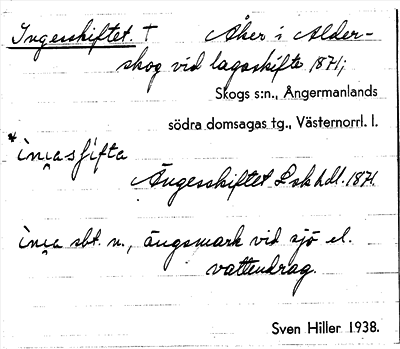 Ingesskiftet. † Åker i Alder-
skog vid lagaskifte 1871;
Skogs s:n., Ångermanlands
södra domsagas tg., Västernorrl. l.
*ìṇasfifta
Ängesskiftet Lskhdl. 1871.
ìṇa sbt. n., ängsmark vid sjö el.
vattendrag.
Sven Hiller 1938.